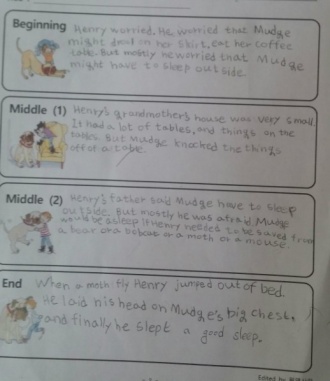 Beginning
Henry worried. He worried that Mudge
might drool in her skirt, eat her coffee
table. But mostly he worried that Mudge
might have to sleep outside.
Middle (1)
Henry's grandmother's house was very small.
It had a lot of tables, and things on the
tables. But Mudge knocked the things
off of a table.
Middle (2)
Henry's father said Mudge have to sleep
outside. But mostly he was afraid Mudge
would be asleep if Henry needed to be saved from
a bear or a bobcat or a moth or a mouse.
End
When a moth fly Henry jumped out of bed.
He laid his head on Mudge's big chest,
and finally he slept a good sleep.
Edited by